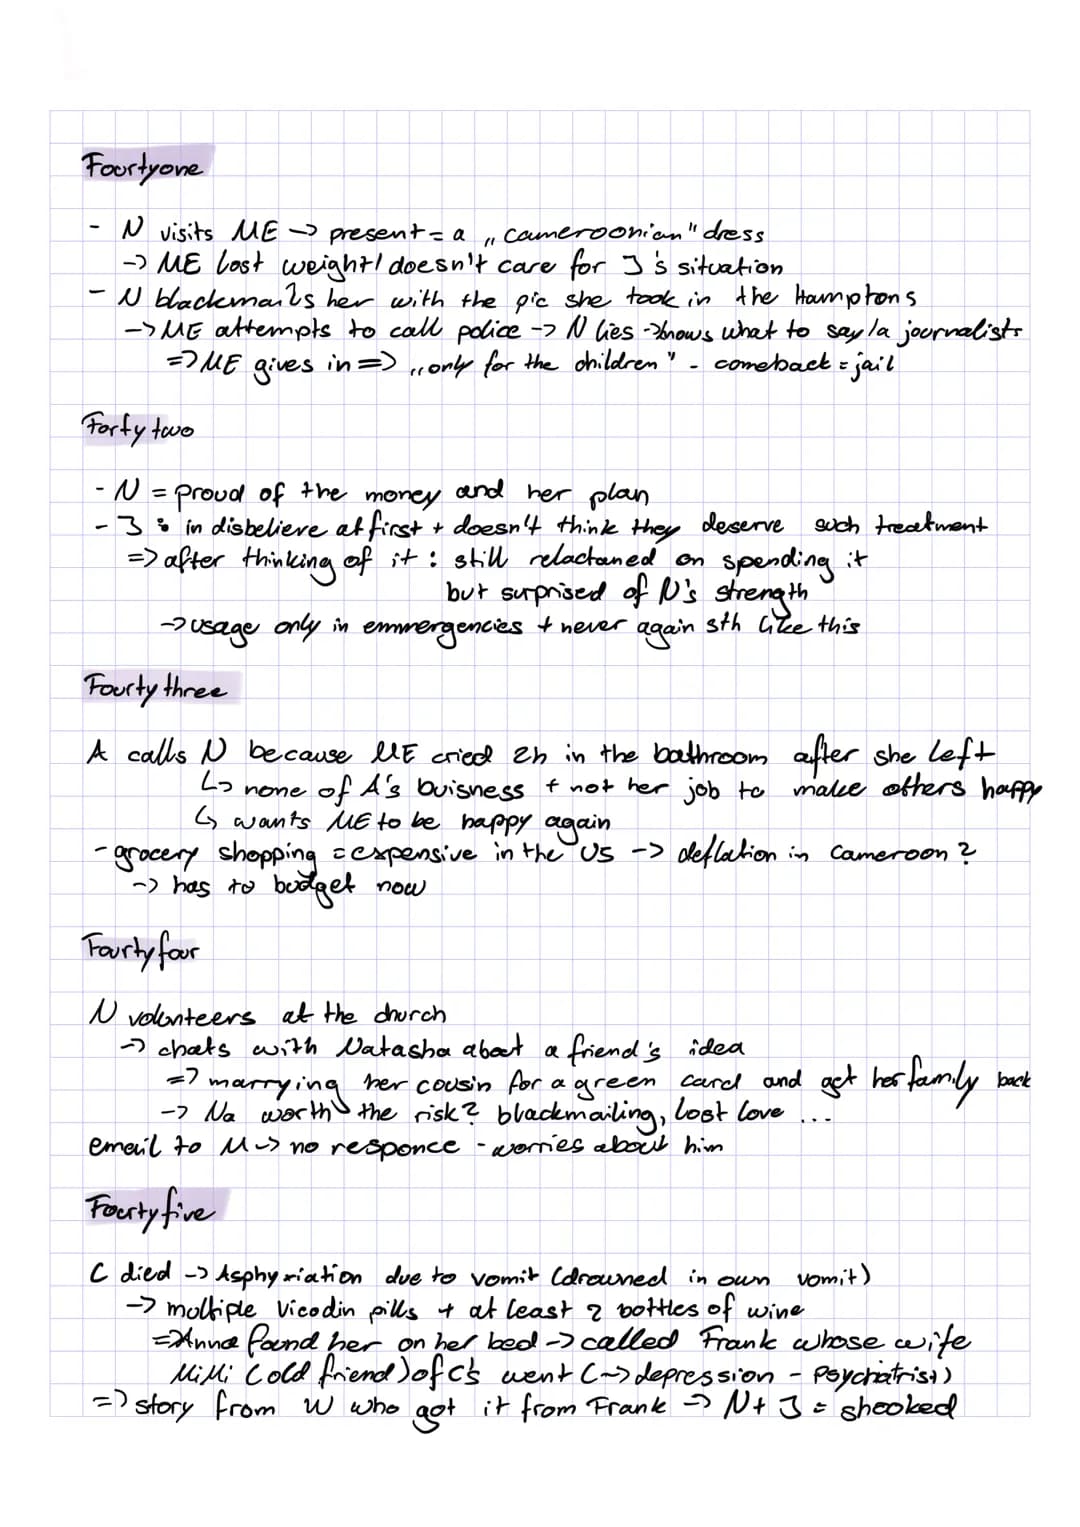 Fourtyone
- N visits ME -> present = a „cameroonian" dress
-> ME lost weight / doesn't care for J's situation
- N blackmails her with the pic she took in the Hamptons
-> ME attempts to call police -> N lies -> knows what to say / a journalists
=> ME gives in => „only for the children" - comeback = jail
Forty two
- N = proud of the money and her plan
- J: in disbelieve at first + doesn't think they deserve such treatment
=> after thinking of it: still relactaned on spending it
but surprised of N's strength
-> usage only in emmergencies + never again sth like this
Fourty three
A calls N because ME cried 2h in the bathroom after she left
↳ none of A's buisness + not her job to make others happy
↳ wants ME to be happy again
- grocery shopping = expensive in the US -> deflation in Cameroon?
-> has to budget now
Fourty four
N volunteers at the church
-> chats with Natasha about a friend's idea
=> marrying her cousin for a green card and get her family back
-> Na worth the risk? blackmailing, lost love ...
email to M -> no responce - worries about him
Fourty five
C died -> Asphyxiation due to vomit (drowned in own vomit)
-> moltiple Vicodin pills + at least 2 bottles of wine
=> Anna found her on her bed -> called Frank whose wife
MiMi (old friend) of C's went (-> depression - Psychatrist)
=> story from W who got it from Frank -> N + J = shooked